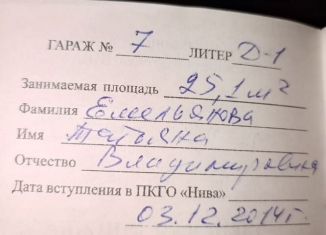 ГАРАЖ № 7 ЛИТЕР Д-1
Занимаемая площадь 25,1 м²
Фамилия Емельянова
Имя Татьяна
Отчество Владимировна
Дата вступления в ПКГО «Нива»
03.12.2014г.